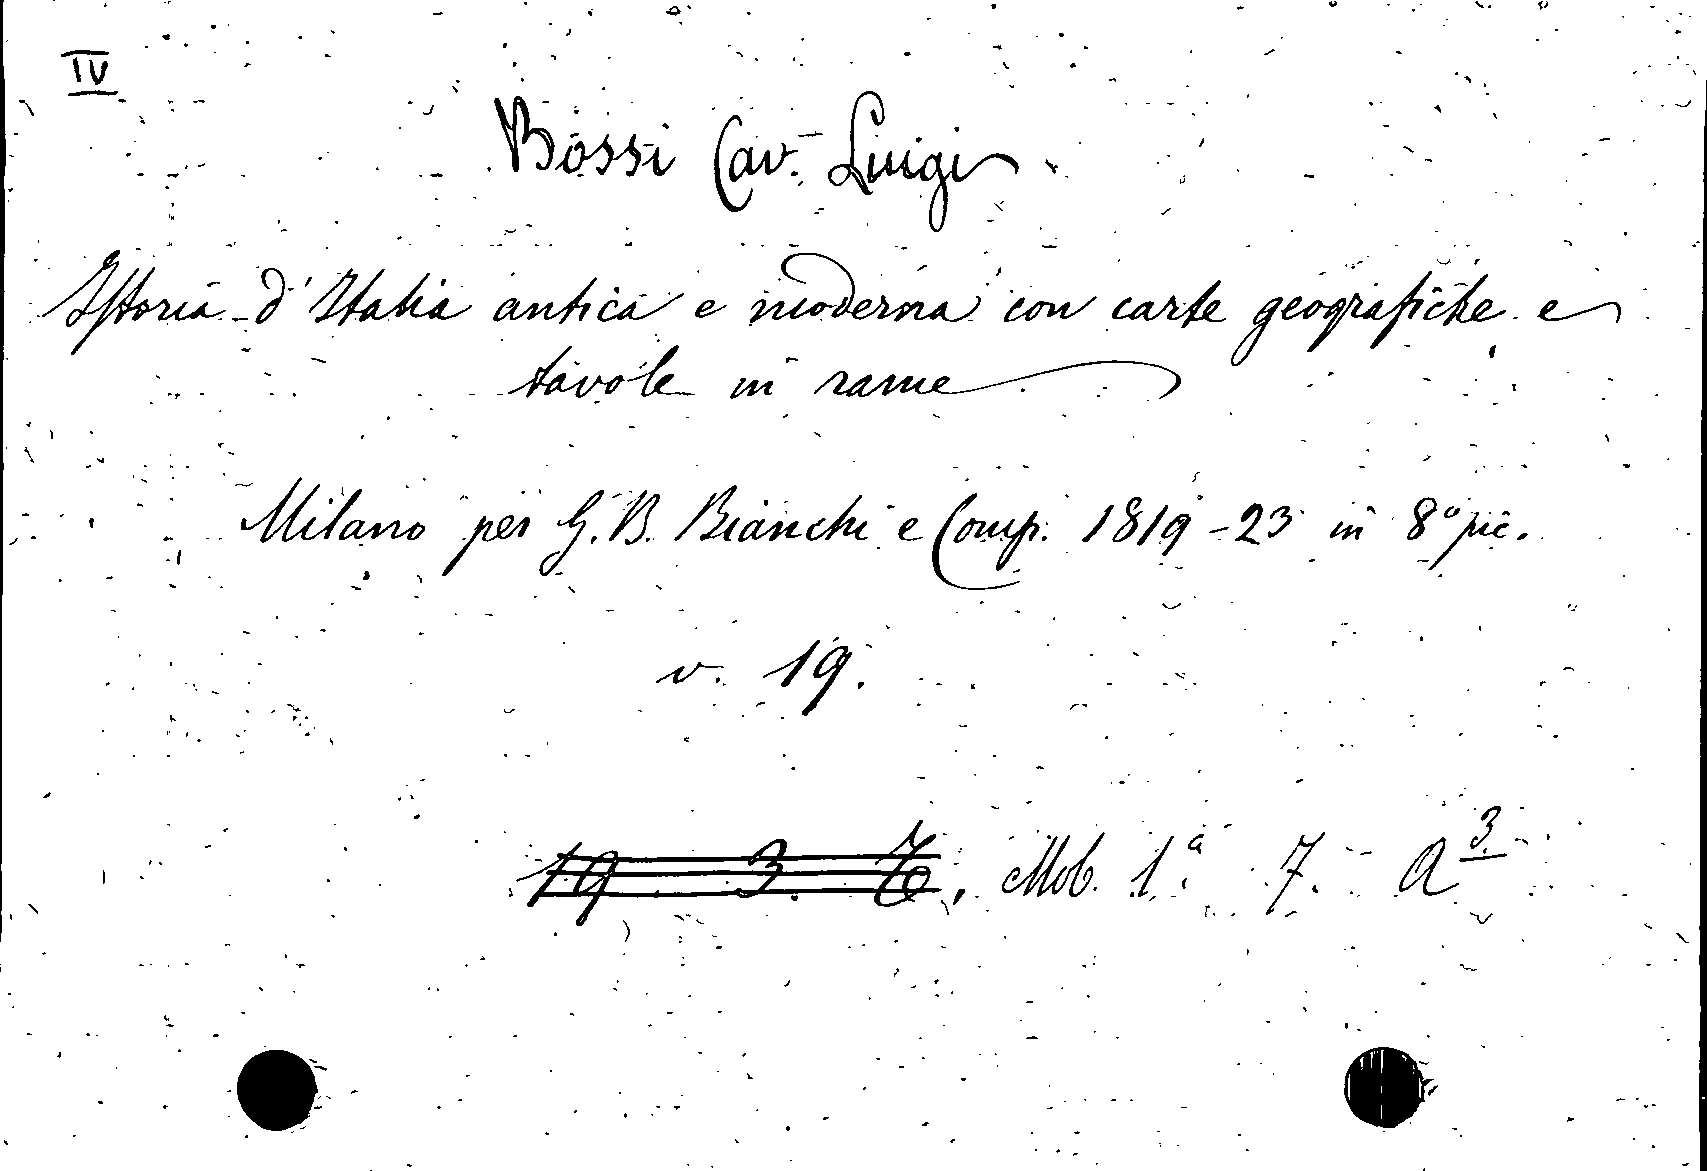 IV
Bossi Cav. Luigi
Istoria d'Italia antica e moderna con carte geografiche e
tavole in rame
Milano per G. B. Bianchi e Comp. 1819-23 in 8° pic.
v. 19.
19 3. 7. Mob. 1.ª 7. A 3